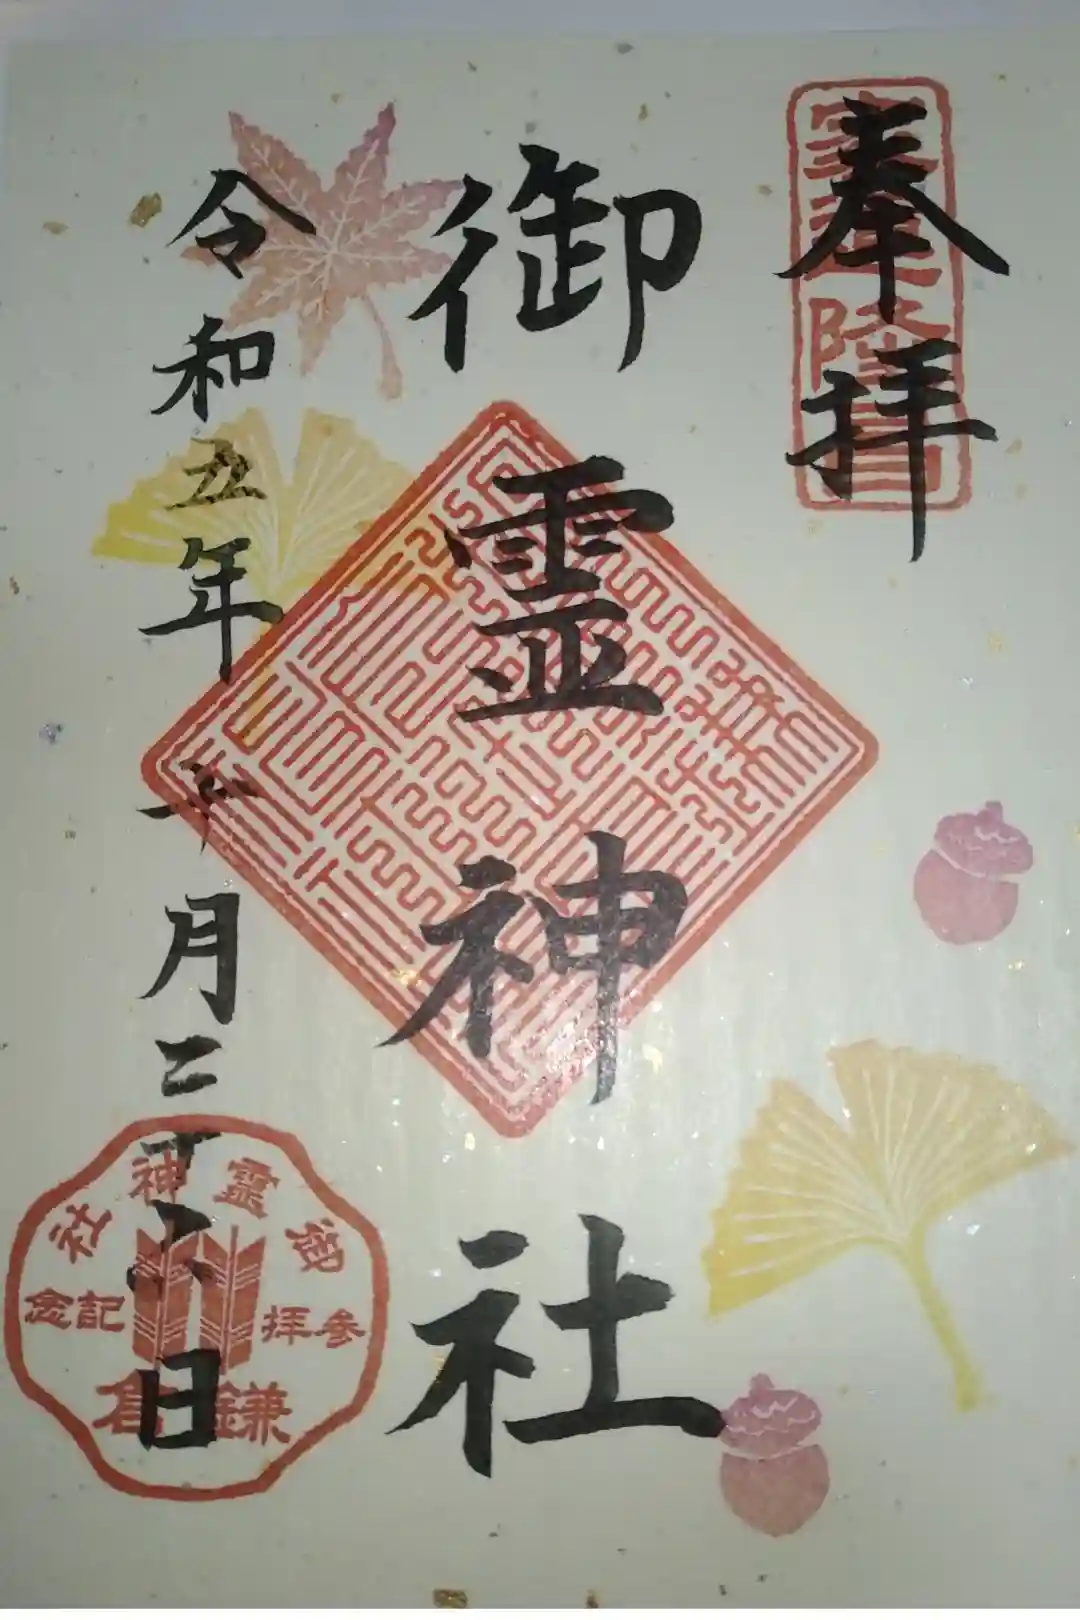 奉拝
家運隆昌
御霊神社
令和五年十月二十八日
御霊神社
参拝
記念
鎌倉